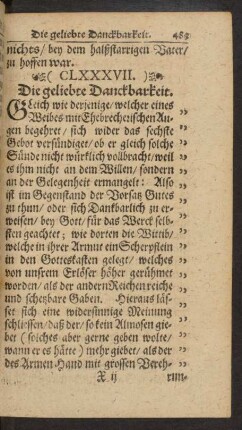 Die geliebte Danckbarkeit. 483
nichts / bey dem halßstarrigen Vater /
zu hoffen war.
( CLXXXVII. )
Die geliebte Danckbarkeit.
GLeich wie derjenige / welcher eines
Weibes mit Ehebrecherischen Au-
gen begehret / sich wider das sechste
Gebot versündiget / ob er gleich solche
Sünde nicht würklich vollbracht / weil
es ihm nicht an dem Willen / sondern
an der Gelegenheit ermangelt: Also
ist im Gegenstand der Vorsatz Gutes
zu thun / oder sich Danckbarlich zu er-
weisen / bey Gott / für das Werck selb-
sten geachtet; wie dorten die Wittib /
welche in ihrer Armut ein Scherpstein
in den Gotteskasten gelegt / welches
von unsrem Erlöser höher gerühmet
worden / als der andern Reichen reiche
und schetzbare Gaben. Hieraus läs-
set sich eine widersinnige Meinung
schliessen / daß der / so kein Almosen gie-
bet ( solches aber gerne geben wolte /
wann er es hätte ) mehr giebet / als der
des Armen Hand mit grossen Vereh-
X ij
run-